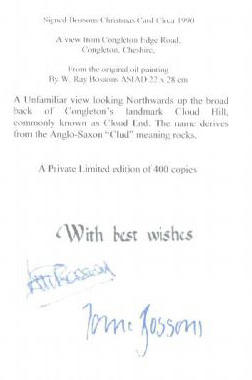 Signed Bossons Christmas Card Circa 1990
A view from Congleton Edge Road,
Congleton, Cheshire,
From the original oil painting
By W. Ray Bossons ASIAD 22 x 28 cm
A Unfamiliar view looking Northwards up the broad
back of Congleton's landmark Cloud Hill,
commonly known as Cloud End. The name derives
from the Anglo-Saxon "Clud" meaning rocks.
A Private Limited edition of 400 copies
With best wishes
Bossons